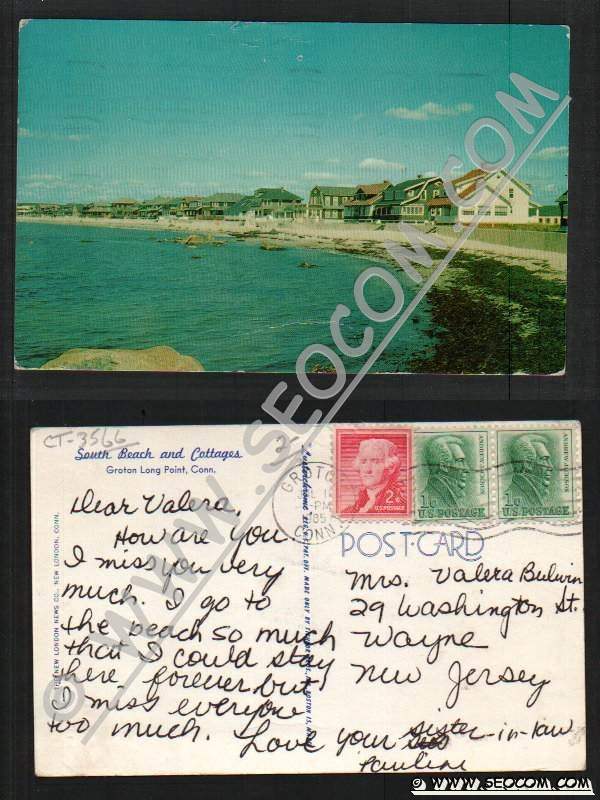 © WWW.SEOCOM.COM
CT-3566
South Beach and Cottages
Groton Long Point, Conn.
Dear Valera,
How are you
I miss you very
much. I go to
the beach so much
that I could stay
here forever but
I miss everyone
too much. Love your sister-in-law
Pauline
THE NEW LONDON NEWS CO., NEW LONDON, CONN.
GROTON
PM
CONN
2¢
U.S. POSTAGE
1¢
U.S. POSTAGE
ANDREW JACKSON
1¢
U.S. POSTAGE
ANDREW JACKSON
POST CARD
Mrs. Valera Bulwin
29 Washington St.
Wayne
New Jersey
© WWW.SEOCOM.COM